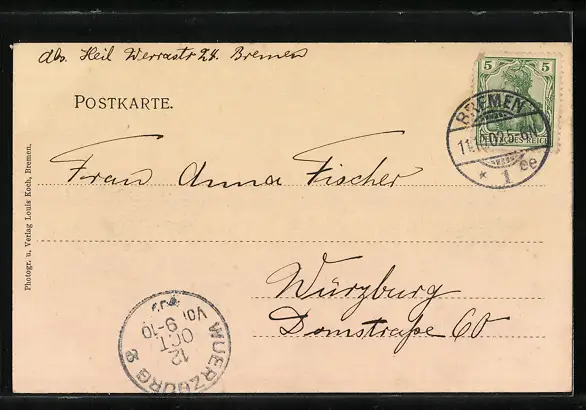 dbs. Heil Werrastr 24. Bremen
POSTKARTE.
5 5
DEUTSCHES REICH
BREMEN
* 1 ee
Frau Anna Fischer
Würzburg
Domstraße 60
WUERZBURG 2
12
OCT
VOR 9-10
Photogr. u. Verlag Louis Koch, Bremen.